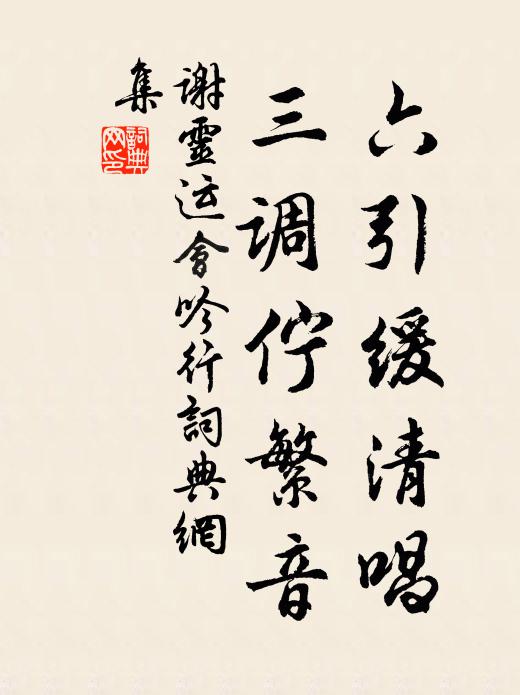 六引缓清唱
三调佇繁音
謝靈运會吟行詞典網
集
詞典
网印